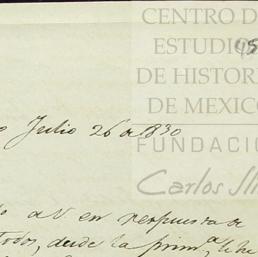 CENTRO D
ESTUDIO
DE HISTOR
DE MEXICO
FUNDACIÓ
Carlos Sli
45
Julio 26 de 1830
a V en respuesta de
todos, desde la prim.ª